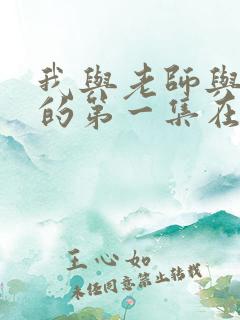 我與老師與
的第一集在
王心如
未经同意禁止转载